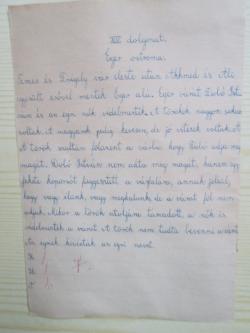 XIV. dolgozat.
Eger ostroma.
Temes és Drégely vár eleste után Ahhmed és Ali
egyesült erővel mentek Eger alá. Eger várát Dobó Ist-
ván és az egri nők védelmezték. A törökök nagyon sokan
voltak, a magyarok pedig kevesen, de jó vitézek voltak.
A török vezér felszólította várba, hogy Dobó adja meg
magát. Dobó István nem adta meg magát, hanem egy
fekete koporsót függesztett a várfalára, annak jeléül,
hogy vagy élünk, vagy meghalunk de a várat fel nem
adjuk. Mikor a török utoljára támadott, a nők is
védelmezték a várat. A török nem tudta bevenni a várat
egri nevet.